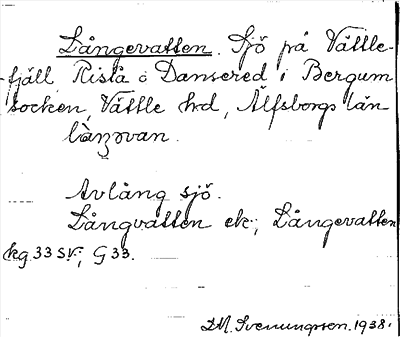 Långevatten. Sjö på Vättle-
fjäll, Ristå o Dansered i Bergum
socken, Vättle hd, Älfsborgs län
Avlång sjö.
Långvatten ek.; Långevatten
kg. 33 SV.; G 33.
D.M. Svenungsson. 1938.